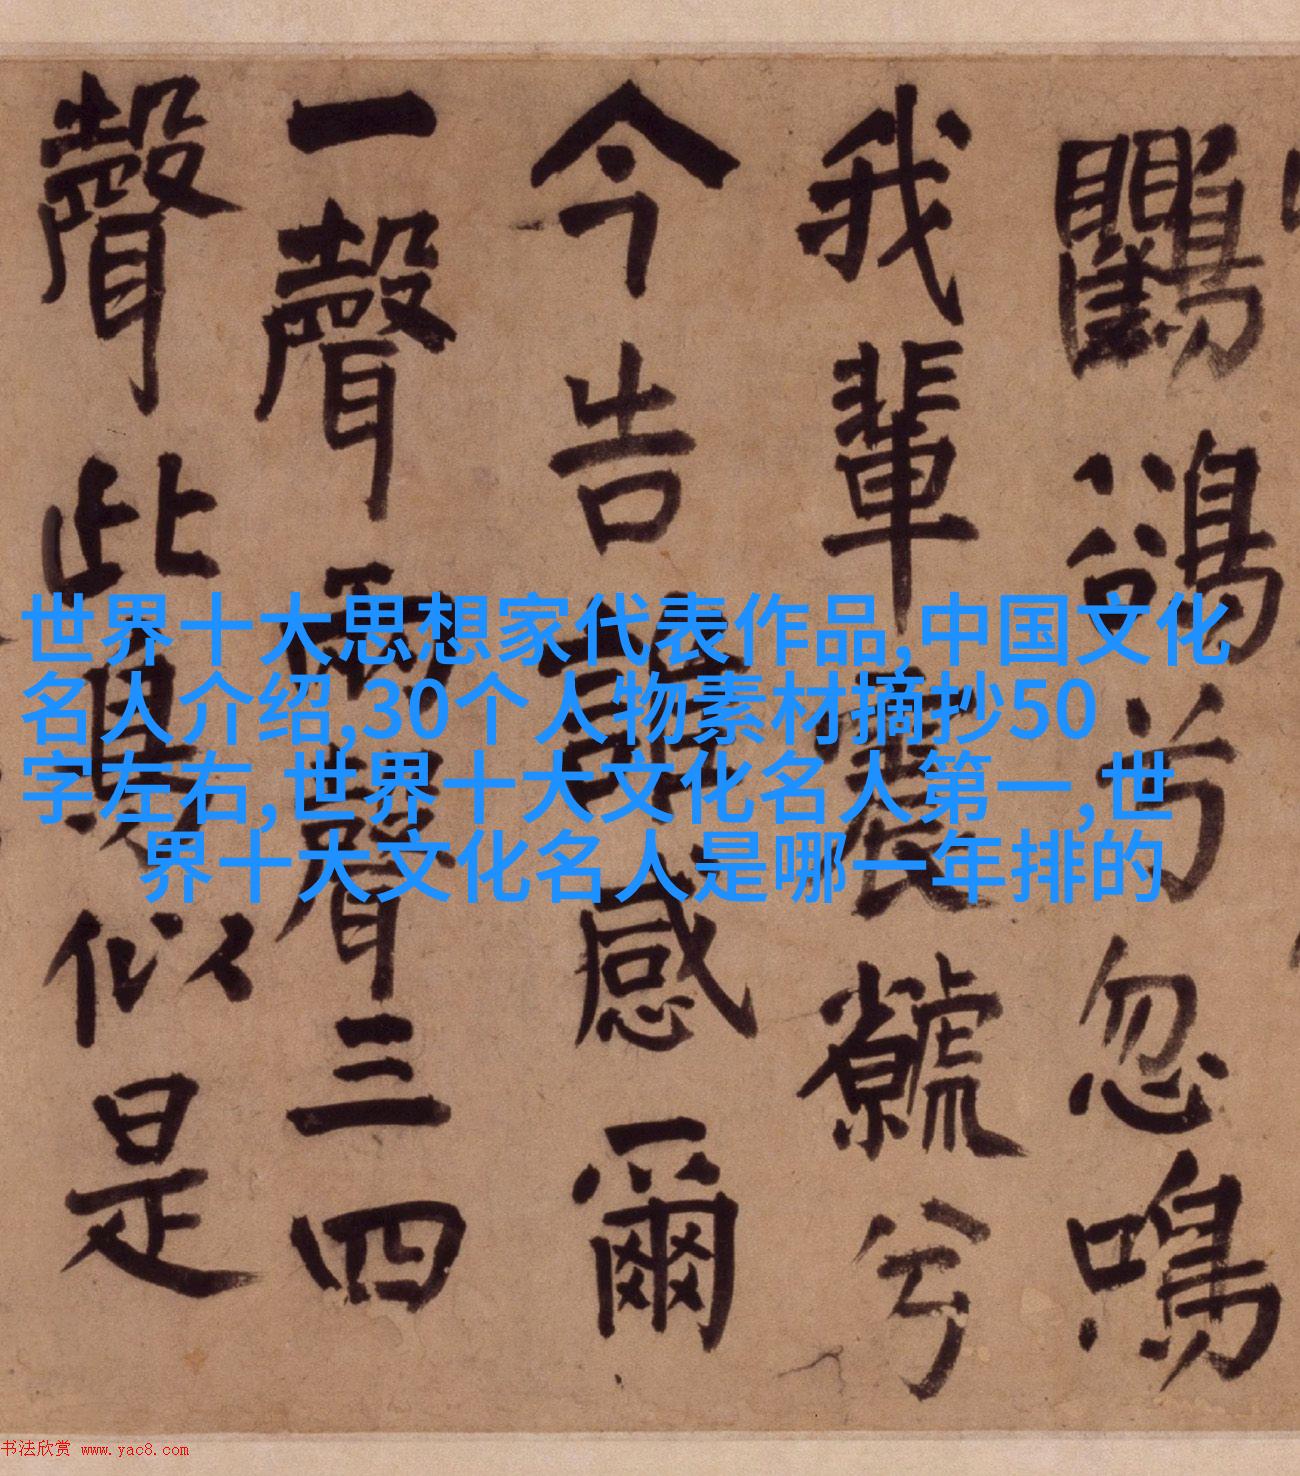 鵒兮忽鳴
我輩震虩兮
今告感爾
一聲聲三四
聲此似是
世界十大思想家代表作品,中国文化
名人介绍,30个人物素材摘抄50
字左右,世界十大文化名人第一,世
界十大文化名人是哪一年排的
书法欣赏 www.yac8.com